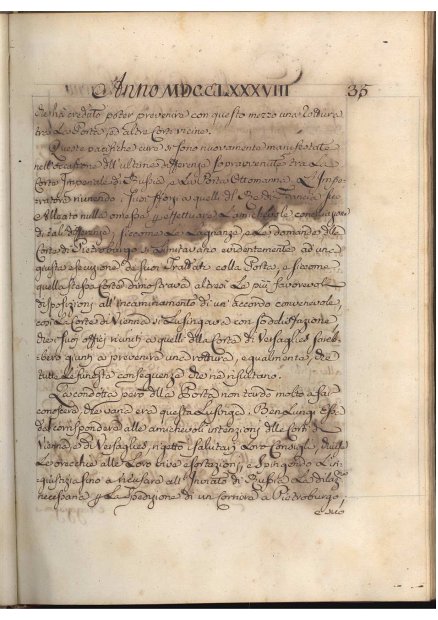 Anno MDCCLXXXVIII 35
che hà creduto poter prevenire con questo mezzo una rottura
trà La Porta, ed altre Corti vicine.
Queste pacifiche cure si sono nuovamente manifestate
nell'occasione dell'ultime differenze sopravvenute trà La
Corte Imperiale di Russia, e La Porta Ottomanna. L'Impe-
ratore riunendo i Suoi offizj a quelli del Rè di Francia suo
Alleato nulla omesse p effettuare L'amichevole conciliazione
di tali differenze; siccome Le Lagnanze, e Le domande della
Corte di Pietroburgo si limitavano evidentemente ad una
giusta esecuzione de suoi Trattati colla Porta, e siccome
quella stessa Corte dimostrava altresì Le più favorevoli
disposizioni all'incaminamento di un'accordo convenevole,
così La Corte di Vienna si Lusingava con sodisfazione
che i suoi offizj riuniti a quelli della Corte di Versaglies sareb-
bero giunti a prevenire una rottura, e qualmente che
tutte Le funeste conseguenze che ne risultano.
La condotta però della Porta non tardò molto a far
conoscere, che vana era questa Lusinga. Ben Lungi essa
dal corrispondere alle amichevoli intenzioni delle Corti di
Vienna, e di Versaglies, rigettò i salutari Loro Consigli, chiuse
Le orecchie alle Loro vive esortazioni, e spingendo L'in-
giustizia sino a ricusare all'Inviato di Russia La dilaz.e
necessaria p La spedizione di un Corriere a Pietroburgo,